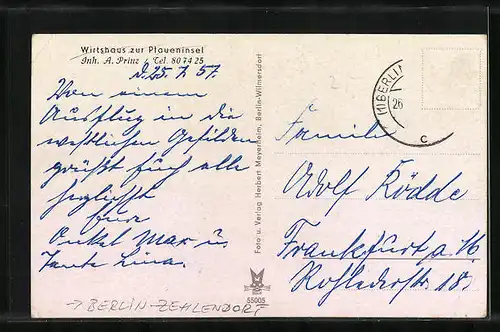 Wirtshaus zur Pfaueninsel
Inh. A. Prinz / Tel. 80 74 25
d. 25. 7. 57.
Von einem
Ausflug in die
westlichen Gefilden
grüßt Euch alle
herzlichst
Eure
Onkel Max u.
Tante Lina.
→ BERLIN-ZEHLENDORF
Foto u. Verlag Herbert Meyerheim, Berlin-Wilmersdorf
55005
(1) BERLIN
26
c
Familie
Adolf Rödde
Frankfurt a. M
18